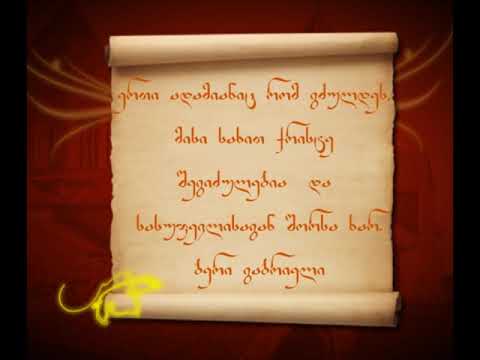 ერთი ადამიანიც რომ გძულდეს,
მისი სახით ქრისტე
შეგიძულებია და
სასუფევლისაგან შორსა ხარ.
ბერი გაბრიელი